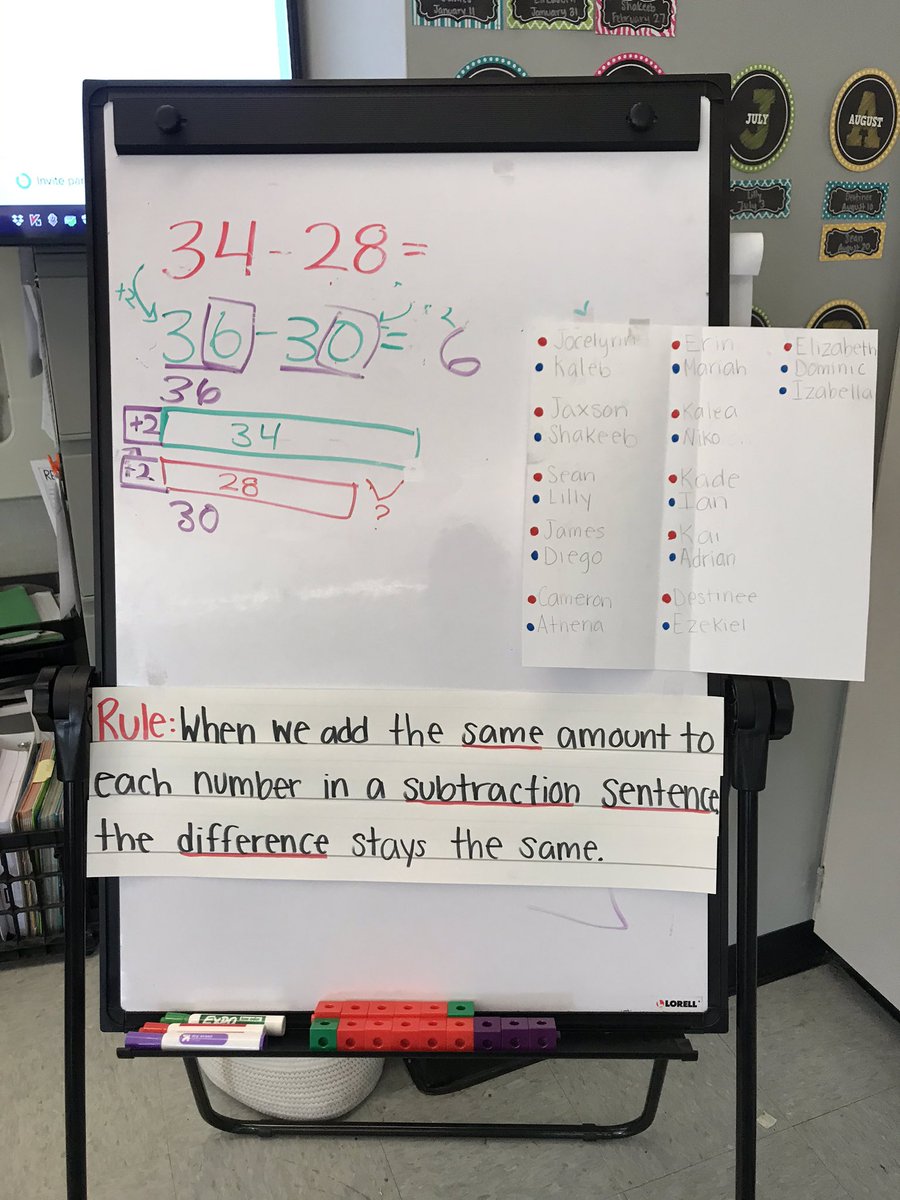 January 11
January 31
Shakeeb
February 27
JULY
AUGUST
Lilly
July 3
Destinee
August 10
Sean
Invite par
34-28=
+2
+2
36-30=6
36
+2 34
+2 28
?
30
Jocelynn
Kaleb
Jaxson
Shakeeb
Sean
Lilly
James
Diego
Cameron
Athena
Erin
Mariah
Kalea
Niko
Kade
Ian
Kai
Adrian
Destinee
Ezekiel
Elizabeth
Dominic
Izabella
Rule: When we add the same amount to
each number in a subtraction sentence,
the difference stays the same.
LORELL
EXPO